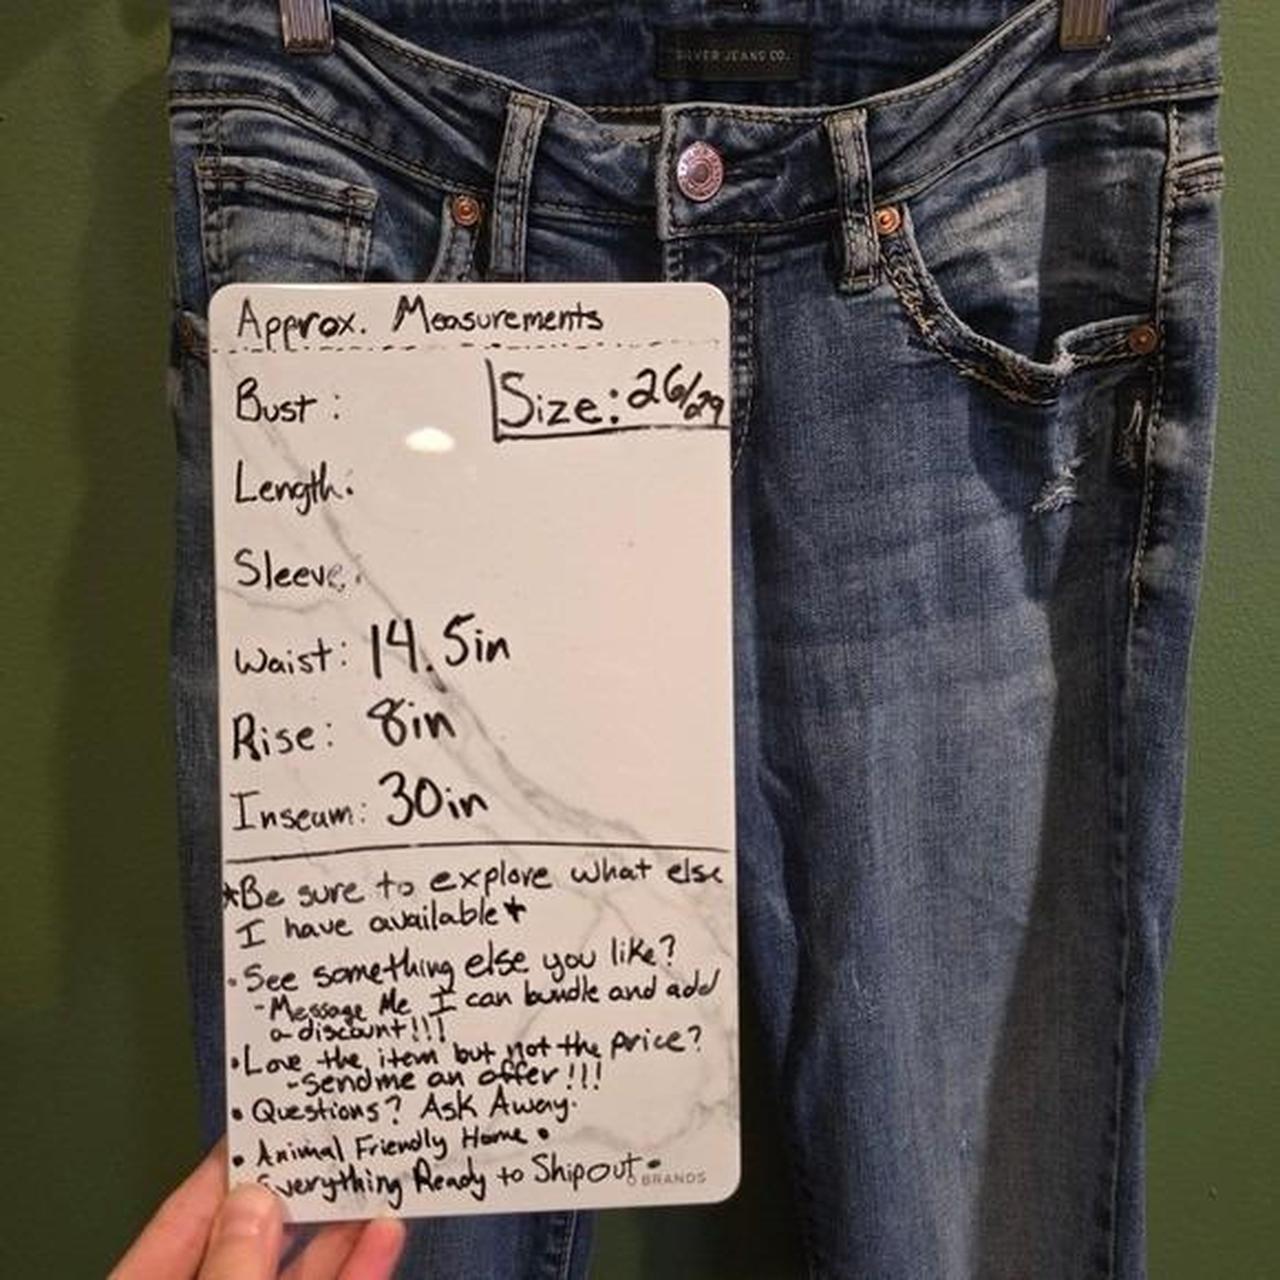 SILVER JEANS CO.
Approx. Measurements
Bust:
Size: 26/29
Length:
Sleeve:
Waist: 14.5in
Rise: 8in
Inseam: 30in
*Be sure to explore what else
I have available*
• See something else you like?
- Message Me I can bundle and add
a discount!!!
• Love the item but not the price?
- Send me an offer!!!
• Questions? Ask Away.
• Animal Friendly Home •
Everything Ready to Ship out •
BRANDS